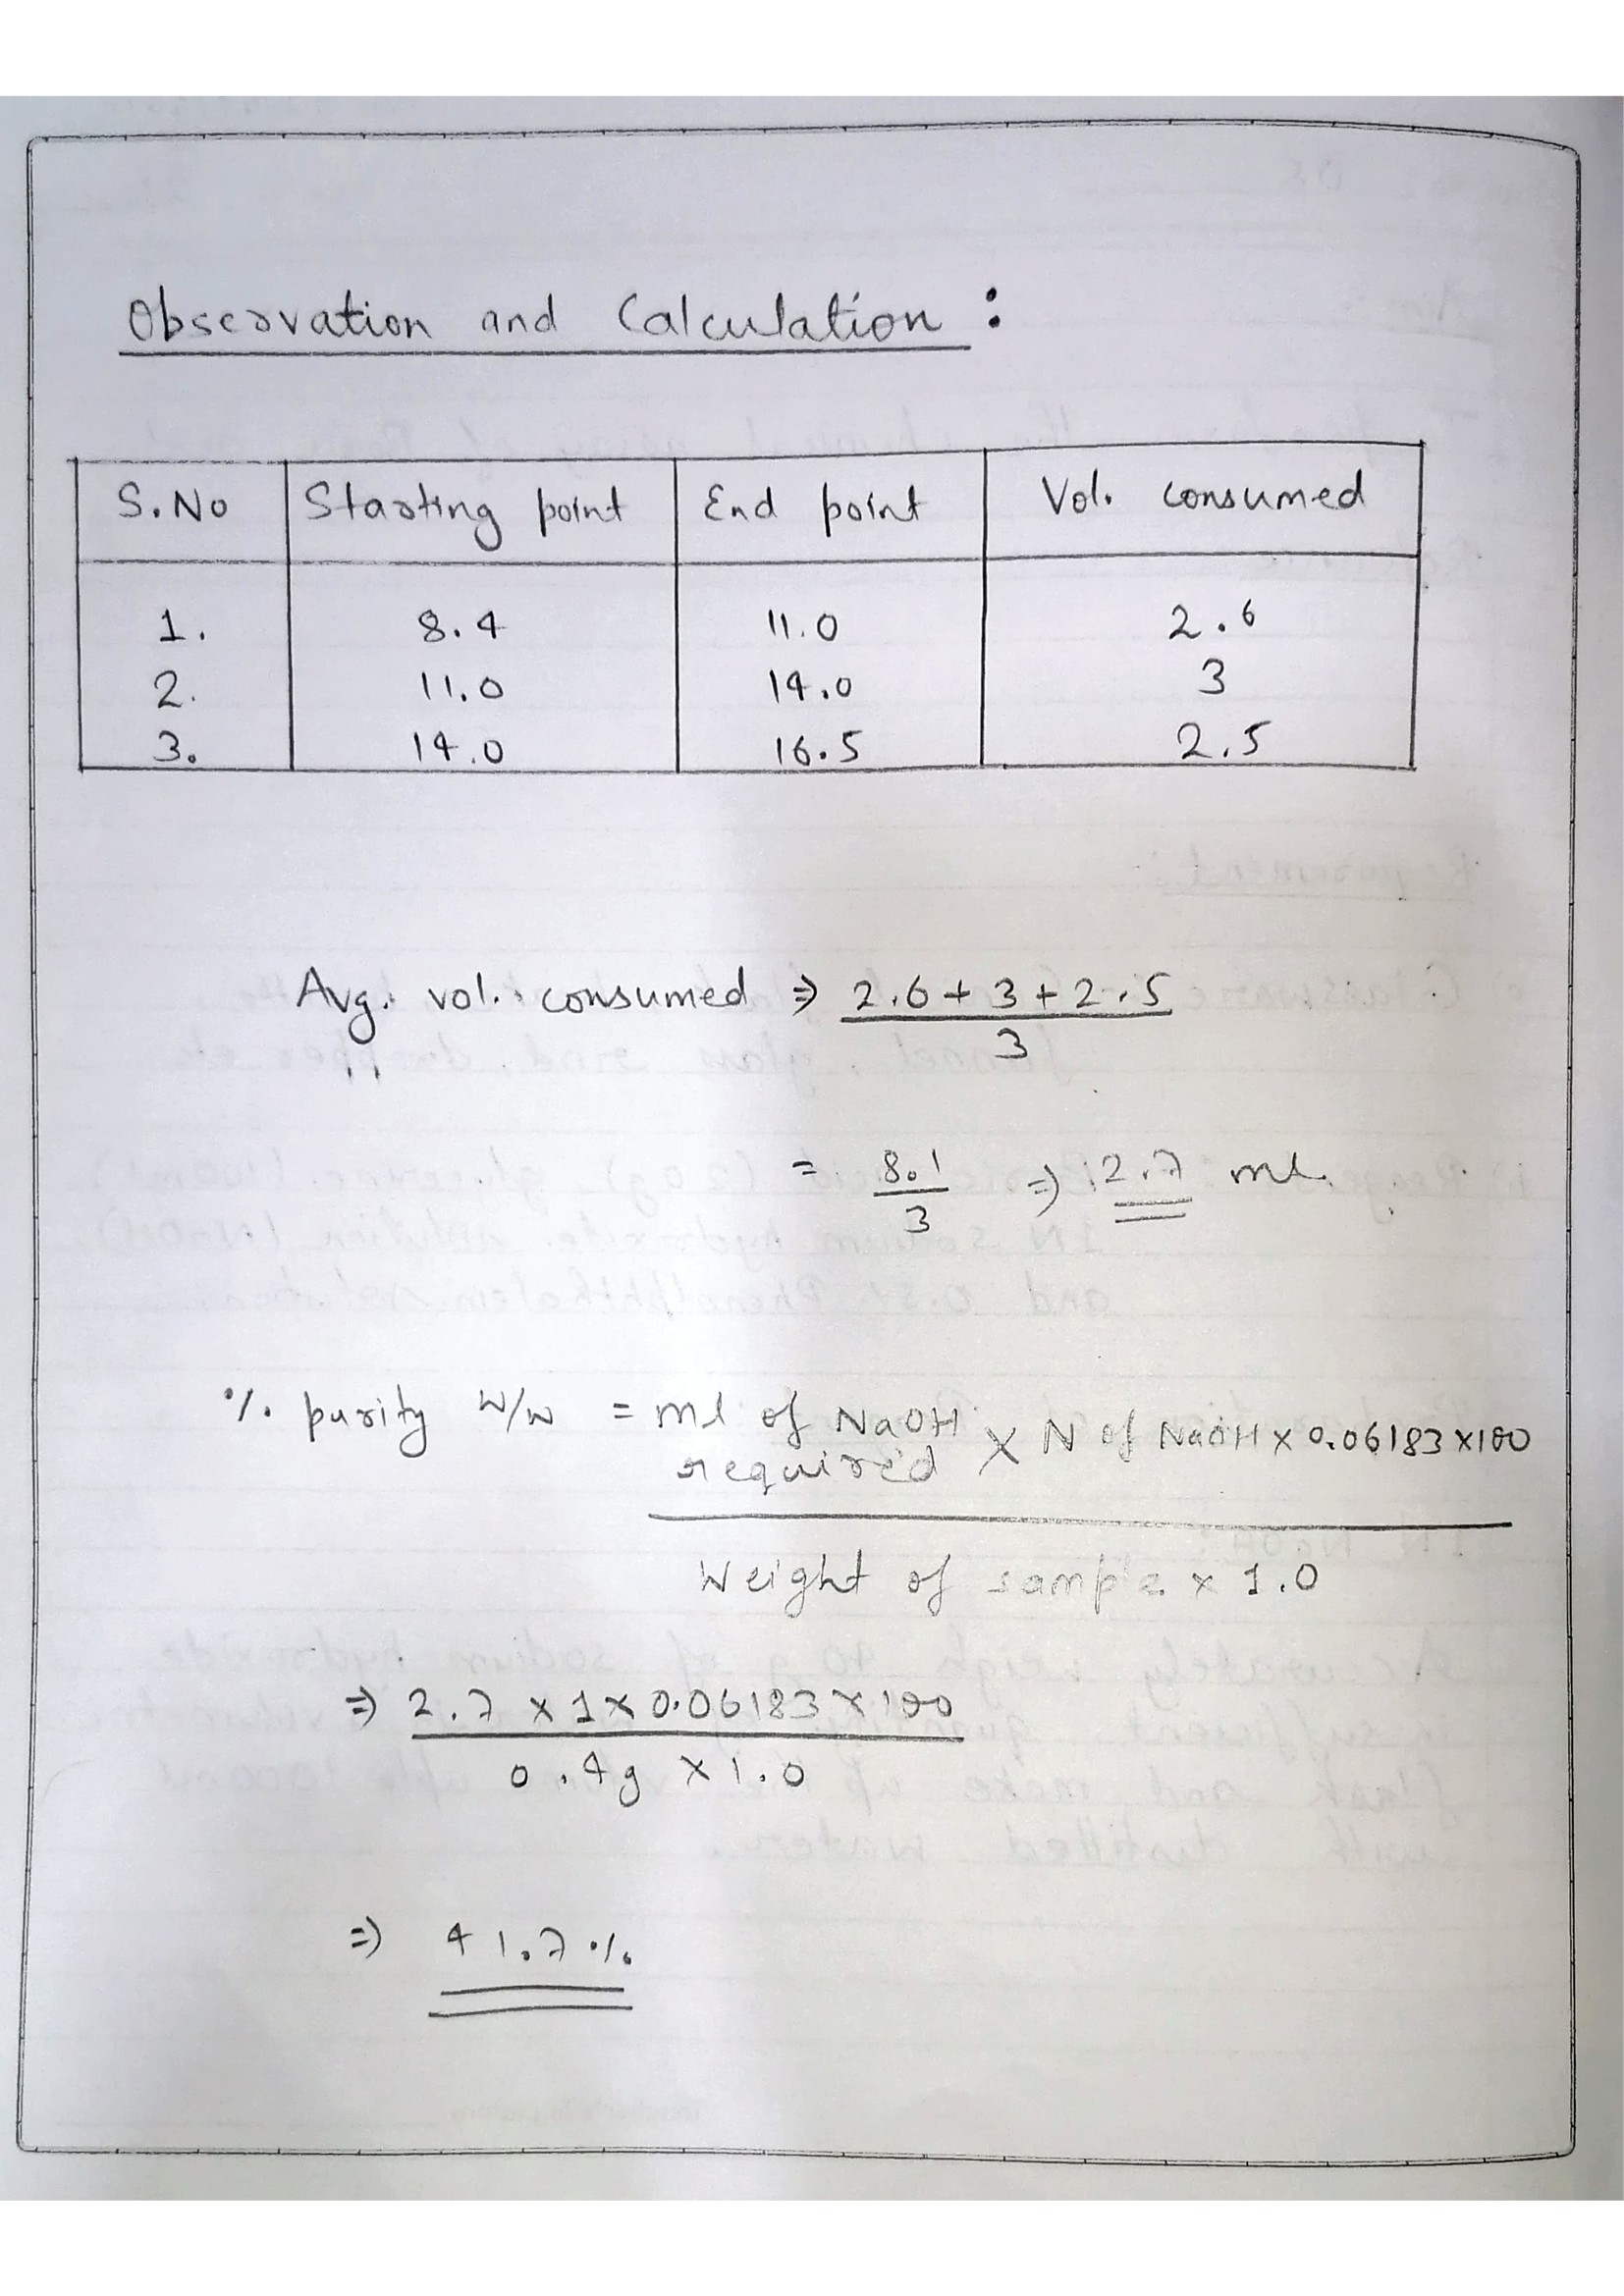 Observation and Calculation :
S.No Starting point End point Vol. consumed
1. 8.4 11.0 2.6
2. 11.0 14.0 3
3. 14.0 16.5 2.5
Avg. vol. consumed ⇒ 2.6 + 3 + 2.5
3
= 8.1 ⇒ 2.7 ml.
3
% purity w/w = ml of NaOH required × N of NaOH × 0.06183 × 100
Weight of sample × 1.0
⇒ 2.7 × 1 × 0.06183 × 100
0.4g × 1.0
⇒ 41.7 %